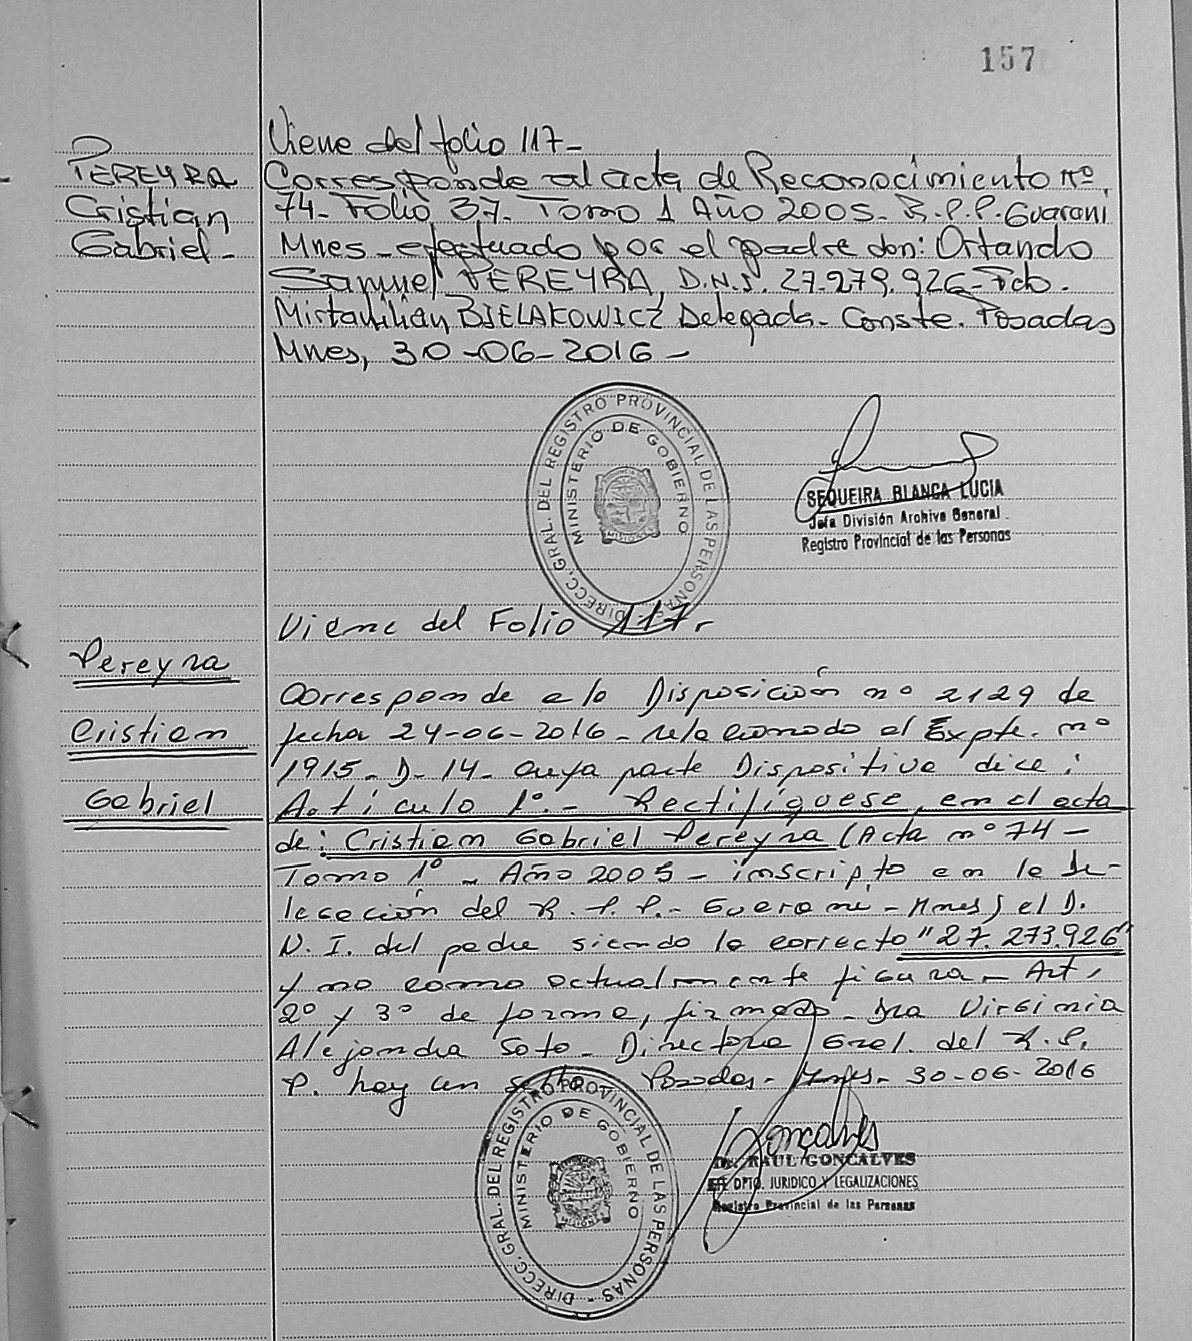 157
Viene del folio 117-
PEREYRA
Cristian
Gabriel-
Corresponde al acta de Reconocimiento nº
74- Folio 37- Tomo 1 Año 2005- R.P.P. Guarani
Mnes- efectuado por el padre don: Orlando
Samuel PEREYRA, D.N.I. 27.279.926- Fdo.
Mirta Lilián BIELAKOWICZ Delegada- Conste. Posadas
Mnes, 30-06-2016-
DIRECC. GRAL. DEL REGISTRO PROVINCIAL DE LAS PERSONAS
MINISTERIO DE GOBIERNO
SEQUEIRA BLANCA LUCIA
Jefa División Archivo General
Registro Provincial de las Personas
Viene del Folio 117-
Pereyra
Cristian
Gabriel
Corresponde a la Disposición nº 2129 de
fecha 24-06-2016- relacionado al Expte. nº
1915- D- 14- cuya parte Dispositiva dice:
Articulo 1º.- Rectifíquese, en el acta
de: Cristian Gabriel Pereyra (Acta nº 74-
Tomo 1º- Año 2005- inscripto en la De-
legación del R.P.P.- Guarani- Mnes) el D.
N.I. del padre siendo lo correcto "27.273.926"
y no como actualmente figura- Art.
2º y 3º de forma, firmado- Dra Virginia
Alejandra Soto- Directora Gral. del R.P.
P. hay un sello Posadas- Mnes- 30-06-2016
DIRECC. GRAL. DEL REGISTRO PROVINCIAL DE LAS PERSONAS-
MINISTERIO DE GOBIERNO
MISIONES
Gonçalves
Dr. RAUL GONCALVES
DPTO. JURIDICO Y LEGALIZACIONES
Registro Provincial de las Personas